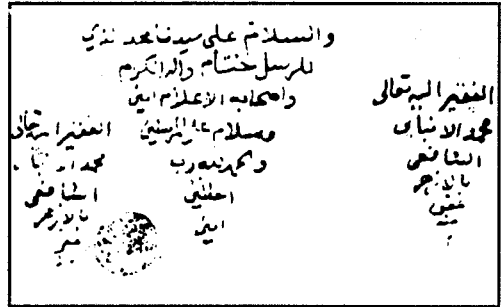 والسلام على سيدنا محمد الذي
للرسل ختام واله الكرام
واصحابه الاعلام امين
وسلام على المرسلين
والحمد لله رب
العالمين
امين
الفقير اليه تعالى
محمد الانبابى
الشافعى
بالازهر
عفى
عنه
الفقير اليه تعالى
محمد الانبابى
الشافعى
بالازهر